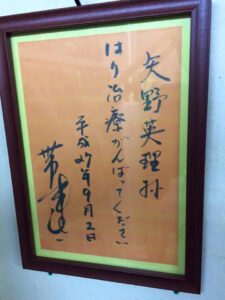 矢野英理様
はり治療がんばってください
平成27年9月2日